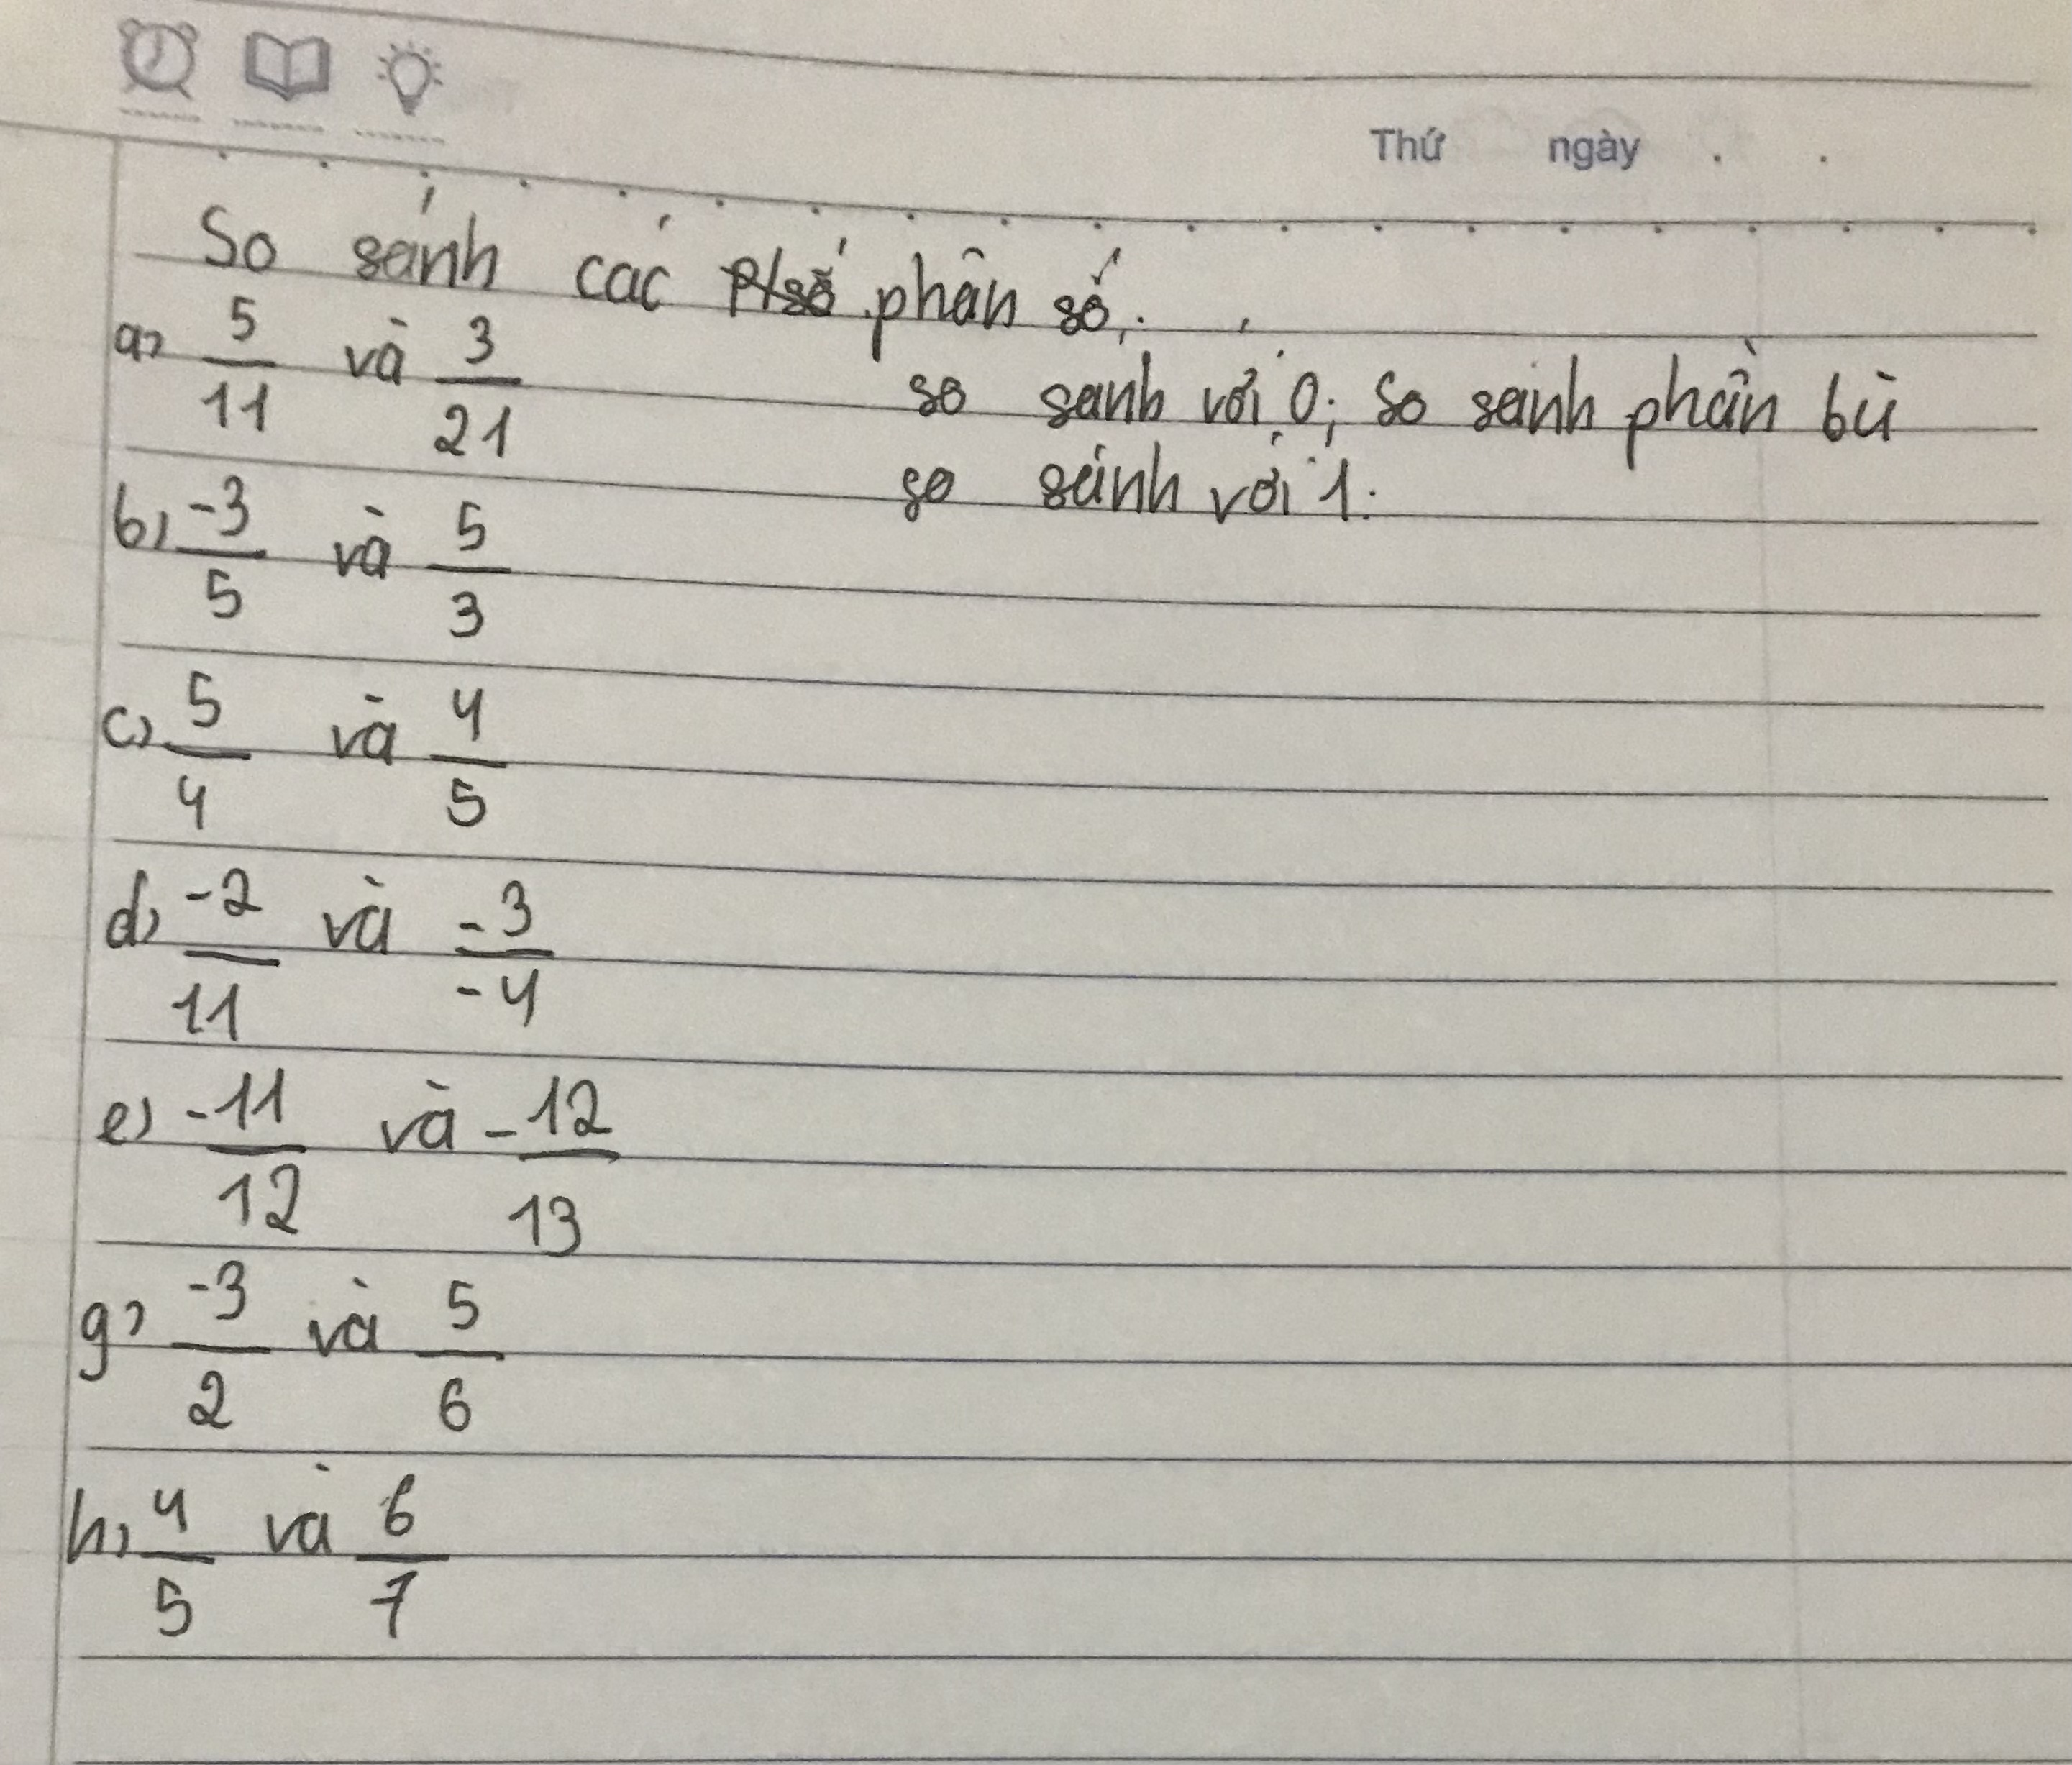 Thứ ngày . .
So sánh các phân số.
a) 5/11 và 3/21
so sánh với 0; So sánh phần bù
so sánh với 1.
b) -3/5 và 5/3
c) 5/4 và 4/5
d) -2/11 và -3/-4
e) -11/12 và -12/13
g) -3/2 và 5/6
h) 4/5 và 6/7